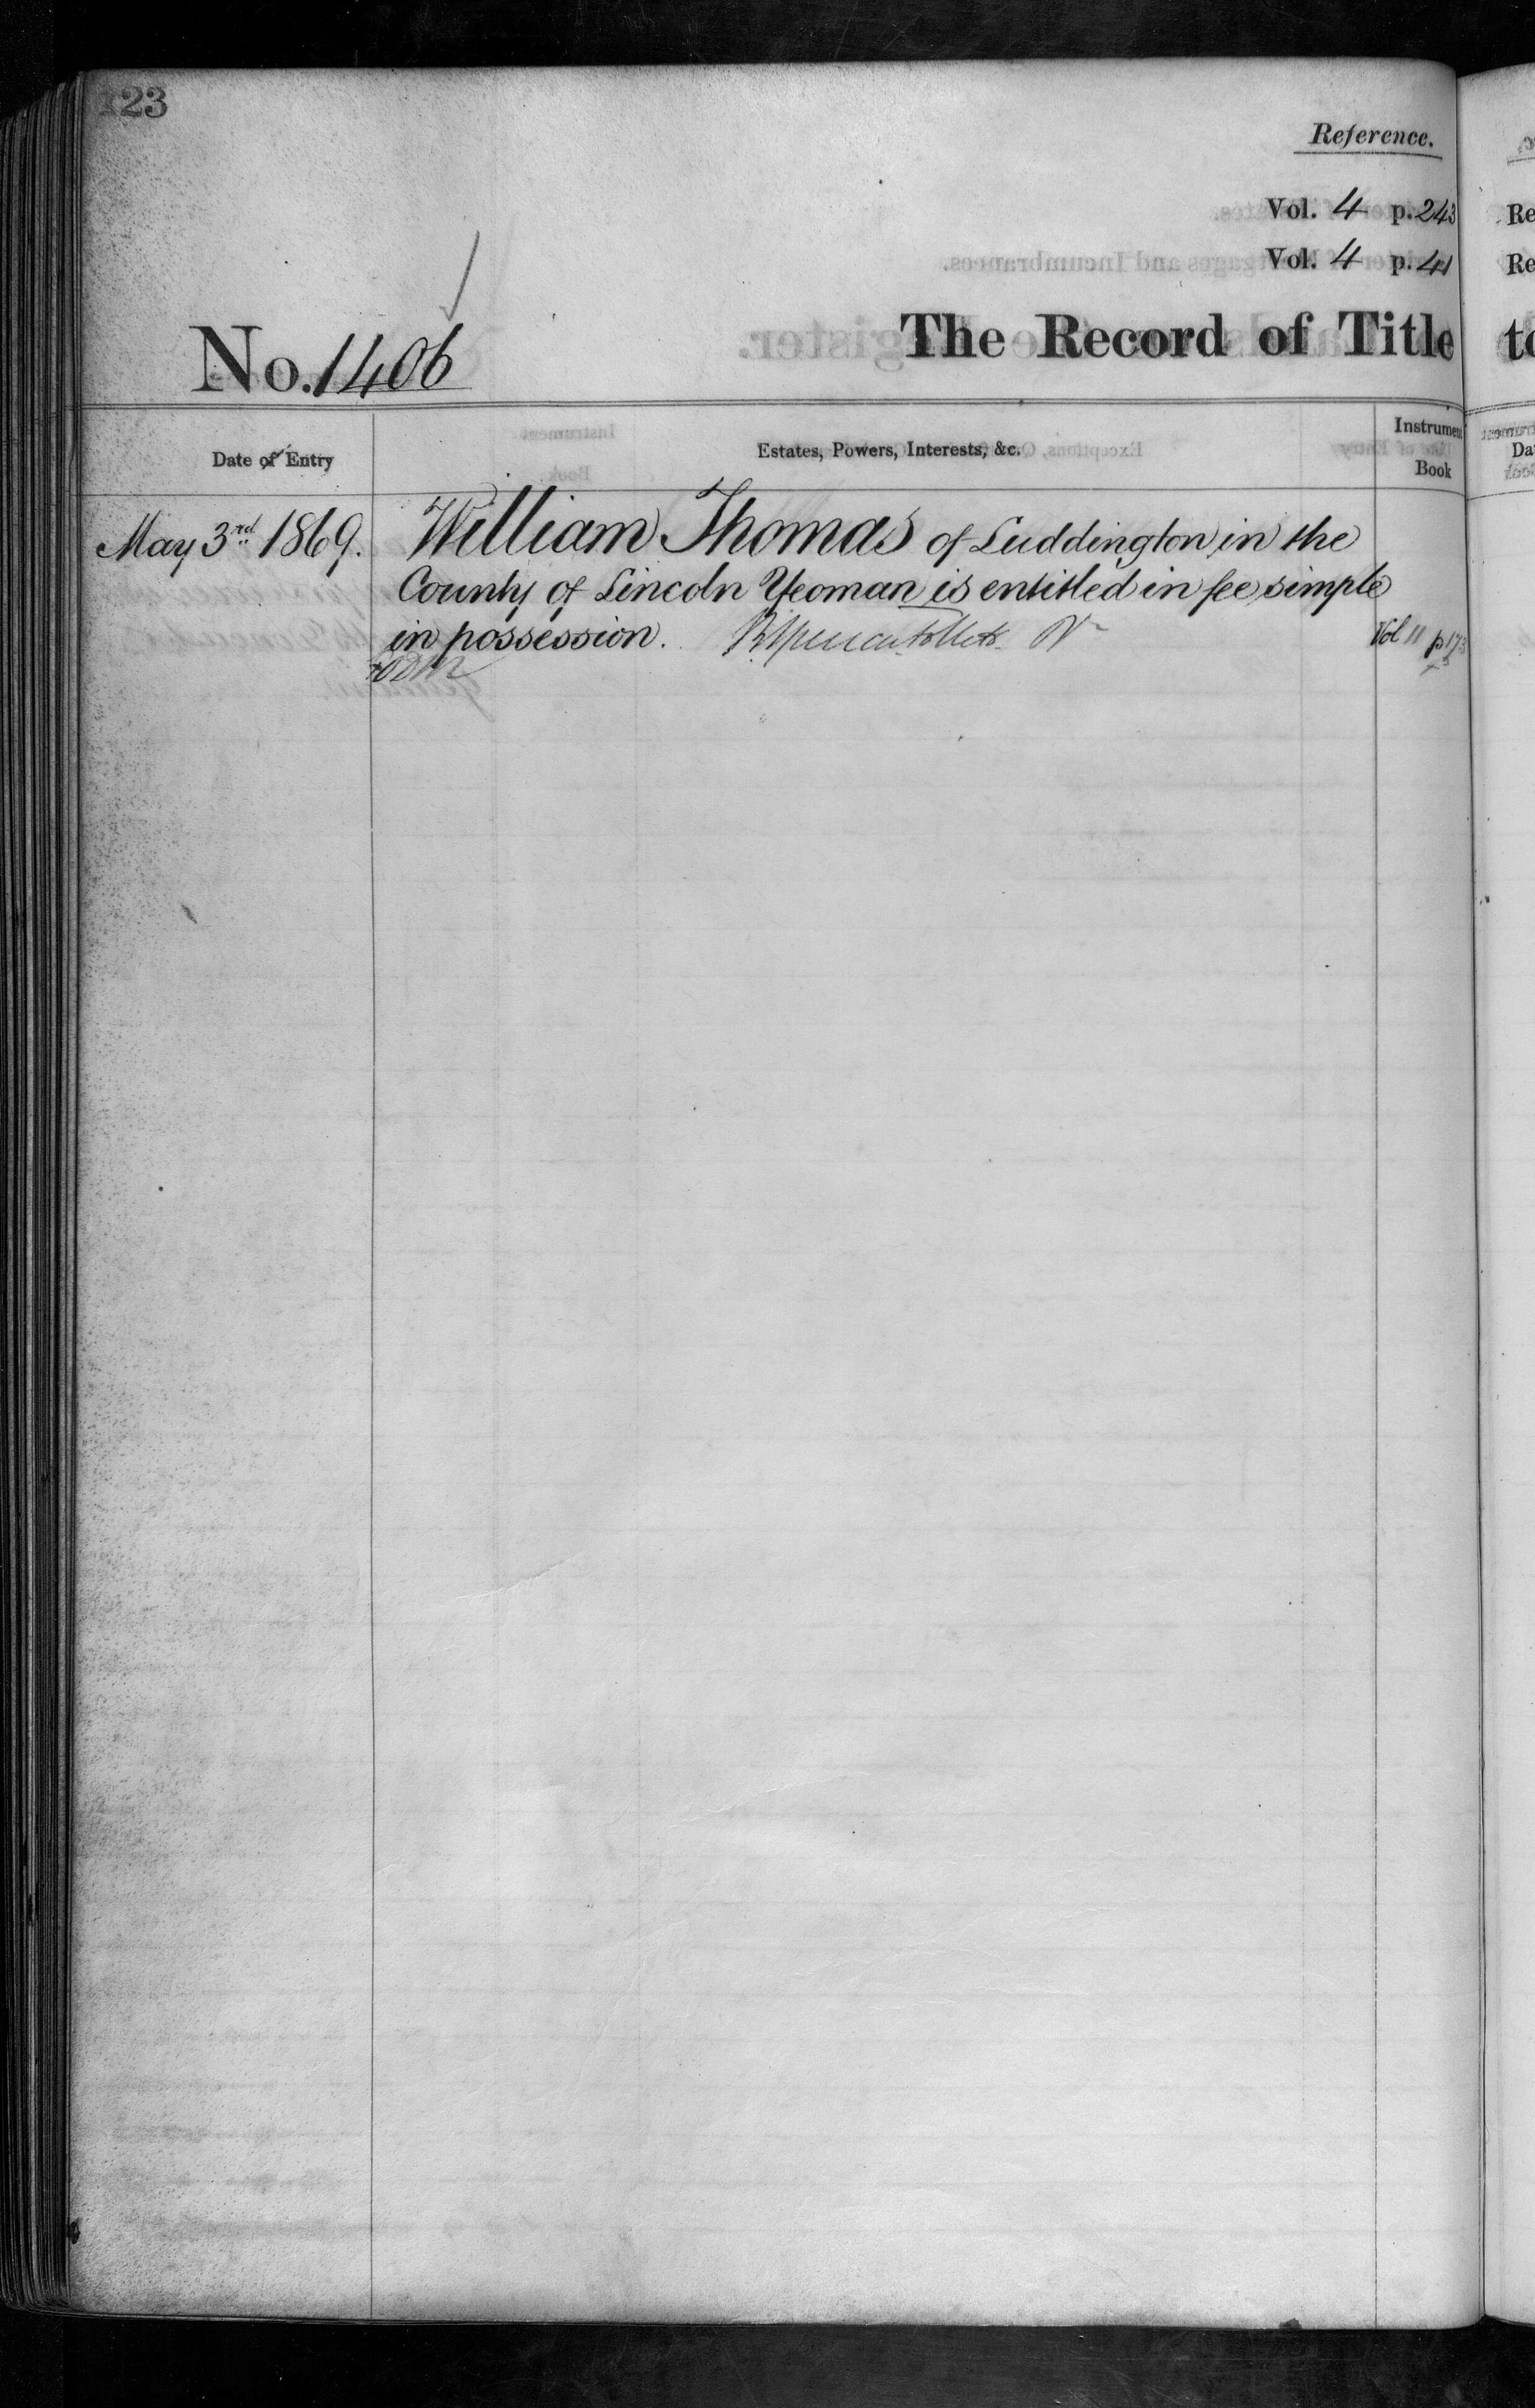 123
Reference.
Vol. 4 p. 243
Vol. 4 p. 41
No. 1406
The Record of Title
Date of Entry
Estates, Powers, Interests, &c.
Instrument
Book
May 3rd 1869.
William Thomas of Luddington in the
County of Lincoln Yeoman is entitled in fee simple
in possession.
Vol 11 p 173
Re
Re
to
Da